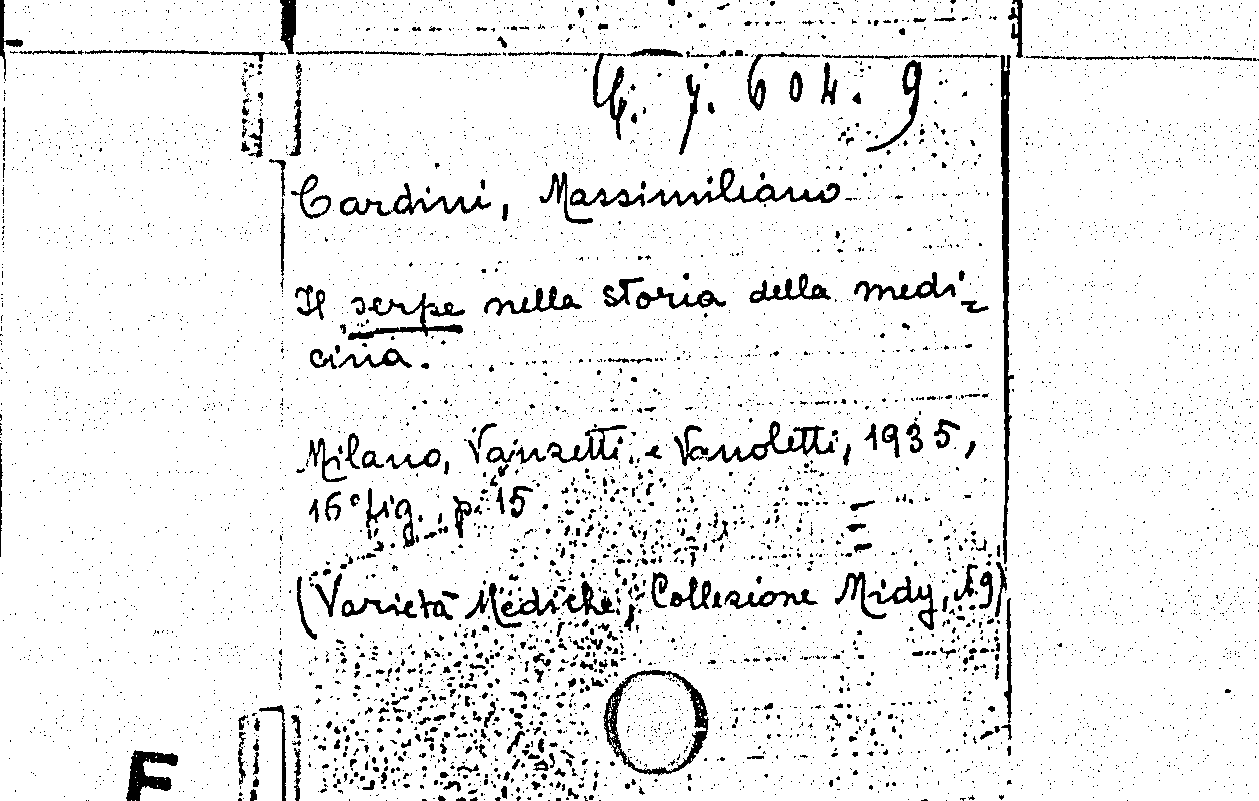 7. 604. 9
Cardini, Massimiliano
Il serpe nella storia della medi=
cina.
Milano, Vanzetti e Vanoletti, 1935,
16° fig., p. 15.
(Varietà Mediche, Collezione Midy, N 9)
F